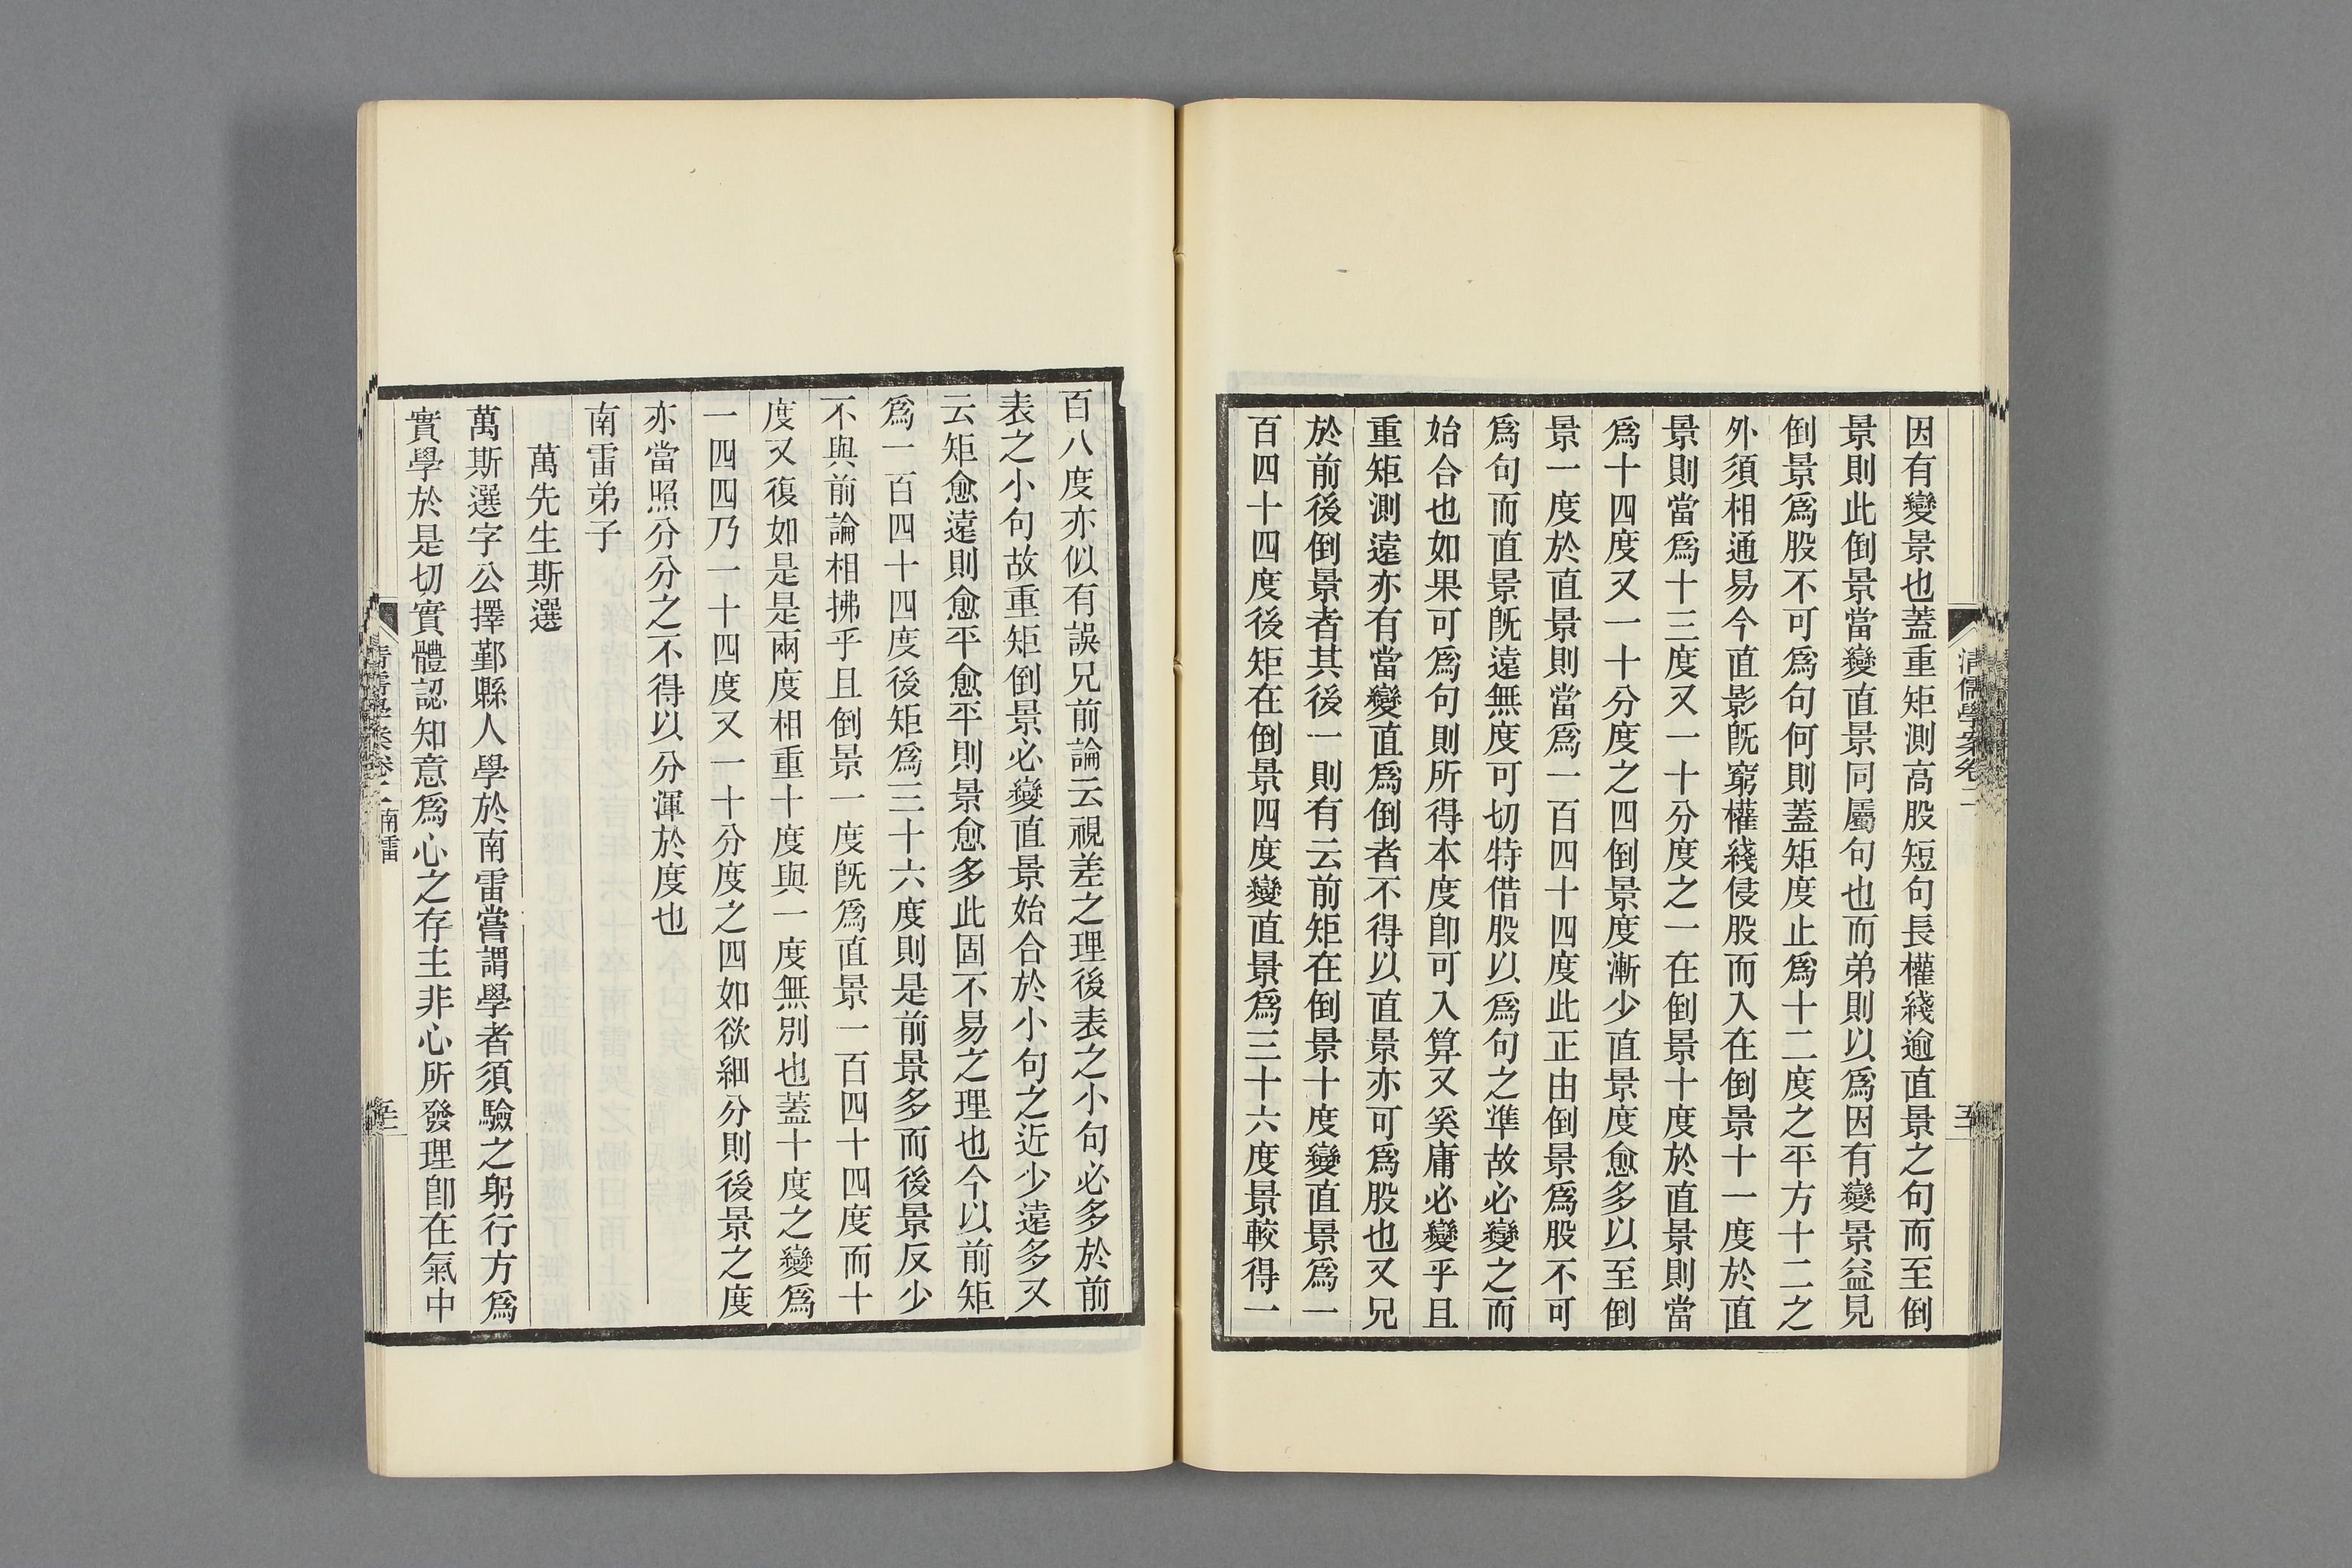 因有變景也蓋重矩測高股短句長權綫逾直景之句而至倒
景則此倒景當變直景同屬句也而弟則以爲因有變景益見
倒景爲股不可爲句何則蓋矩度止爲十二度之平方十二之
外須相通易今直影旣窮權綫侵股而入在倒景十一度於直
景則當爲十三度又一十分度之一在倒景十度於直景則當
爲十四度又一十分度之四倒景度漸少直景度愈多以至倒
景一度於直景則當爲一百四十四度此正由倒景爲股不可
爲句而直景旣遠無度可切特借股以爲句之準故必變之而
始合也如果可爲句則所得本度卽可入算又奚庸必變乎且
重矩測遠亦有當變直爲倒者不得以直景亦可爲股也又兄
於前後倒景者其後一則有云前矩在倒景十度變直景爲一
百四十四度後矩在倒景四度變直景爲三十六度景較得一
清儒學案卷二
百八度亦似有誤兄前論云視差之理後表之小句必多於前
表之小句故重矩倒景必變直景始合於小句之近少遠多又
云矩愈遠則愈平愈平則景愈多此固不易之理也今以前矩
爲一百四十四度後矩爲三十六度則是前景多而後景反少
不與前論相拂乎且倒景一度旣爲直景一百四十四度而十
度又復如是是兩度相重十度與一度無別也蓋十度之變爲
一四四乃一十四度又一十分度之四如欲細分則後景之度
亦當照分分之不得以分渾於度也
南雷弟子
萬先生斯選
萬斯選字公擇鄞縣人學於南雷嘗謂學者須驗之躬行方爲
實學於是切實體認知意爲心之存主非心所發理卽在氣中
清儒學案卷二 南雷